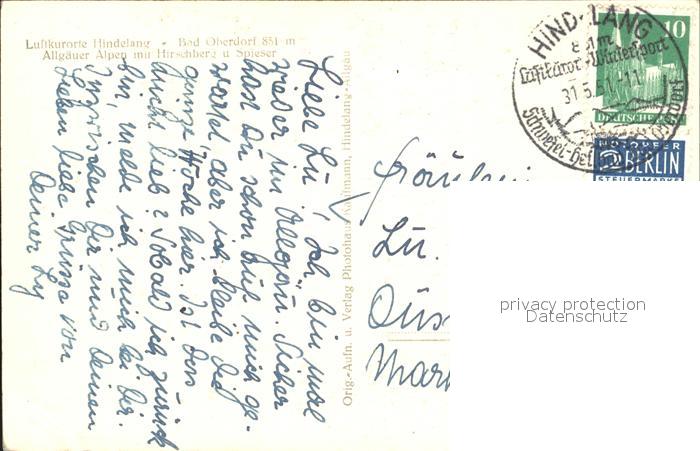 Luftkurorte Hindelang - Bad Oberdorf 851 m
Allgäuer Alpen mit Hirschberg u. Spieser
Liebe Lu, Ich bin mal
wieder im Allgäu. Sicher
hast Du schon auf mich ge-
wartet, aber ich bleibe die
ganze Woche hier. Ist das
nicht lieb? Sobald ich zurück
bin, melde ich mich bei Dir.
Inzwischen Dir und Deinen
Lieben liebe Grüsse von
Deiner Ly
Orig.-Aufn. u. Verlag Photohaus Kaufmann, Hindelang-Allgäu
Fräulein
Lu.
Düs
Mar
HINDELANG
851 m
Luftkurort-Wintersport
31.5.51.-11
Schwefel-
10
DEUTSCHE
NOTOPFER
2 BERLIN
STEUERMARKE
privacy protection
Datenschutz